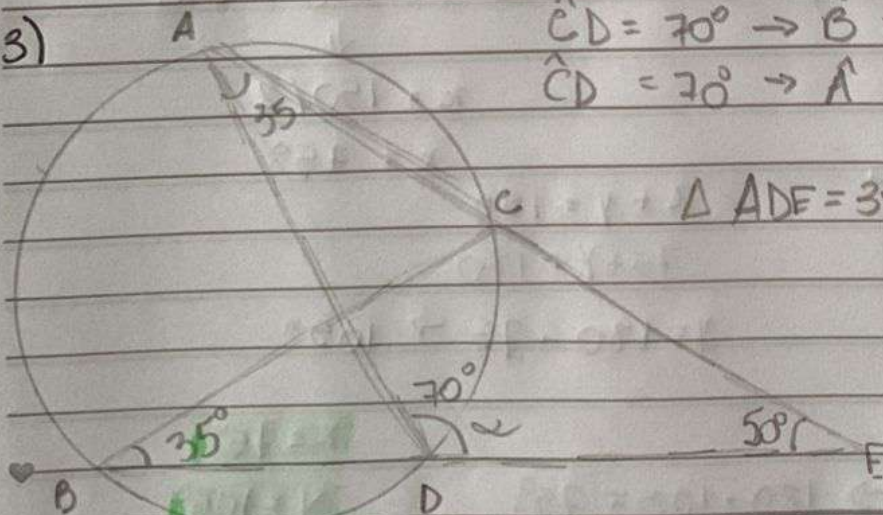 3)
A
ĈD = 70° → B
ĈD = 70° → Â
35
C
Δ ADE = 3
70°
35°
α
50°
E
B
D